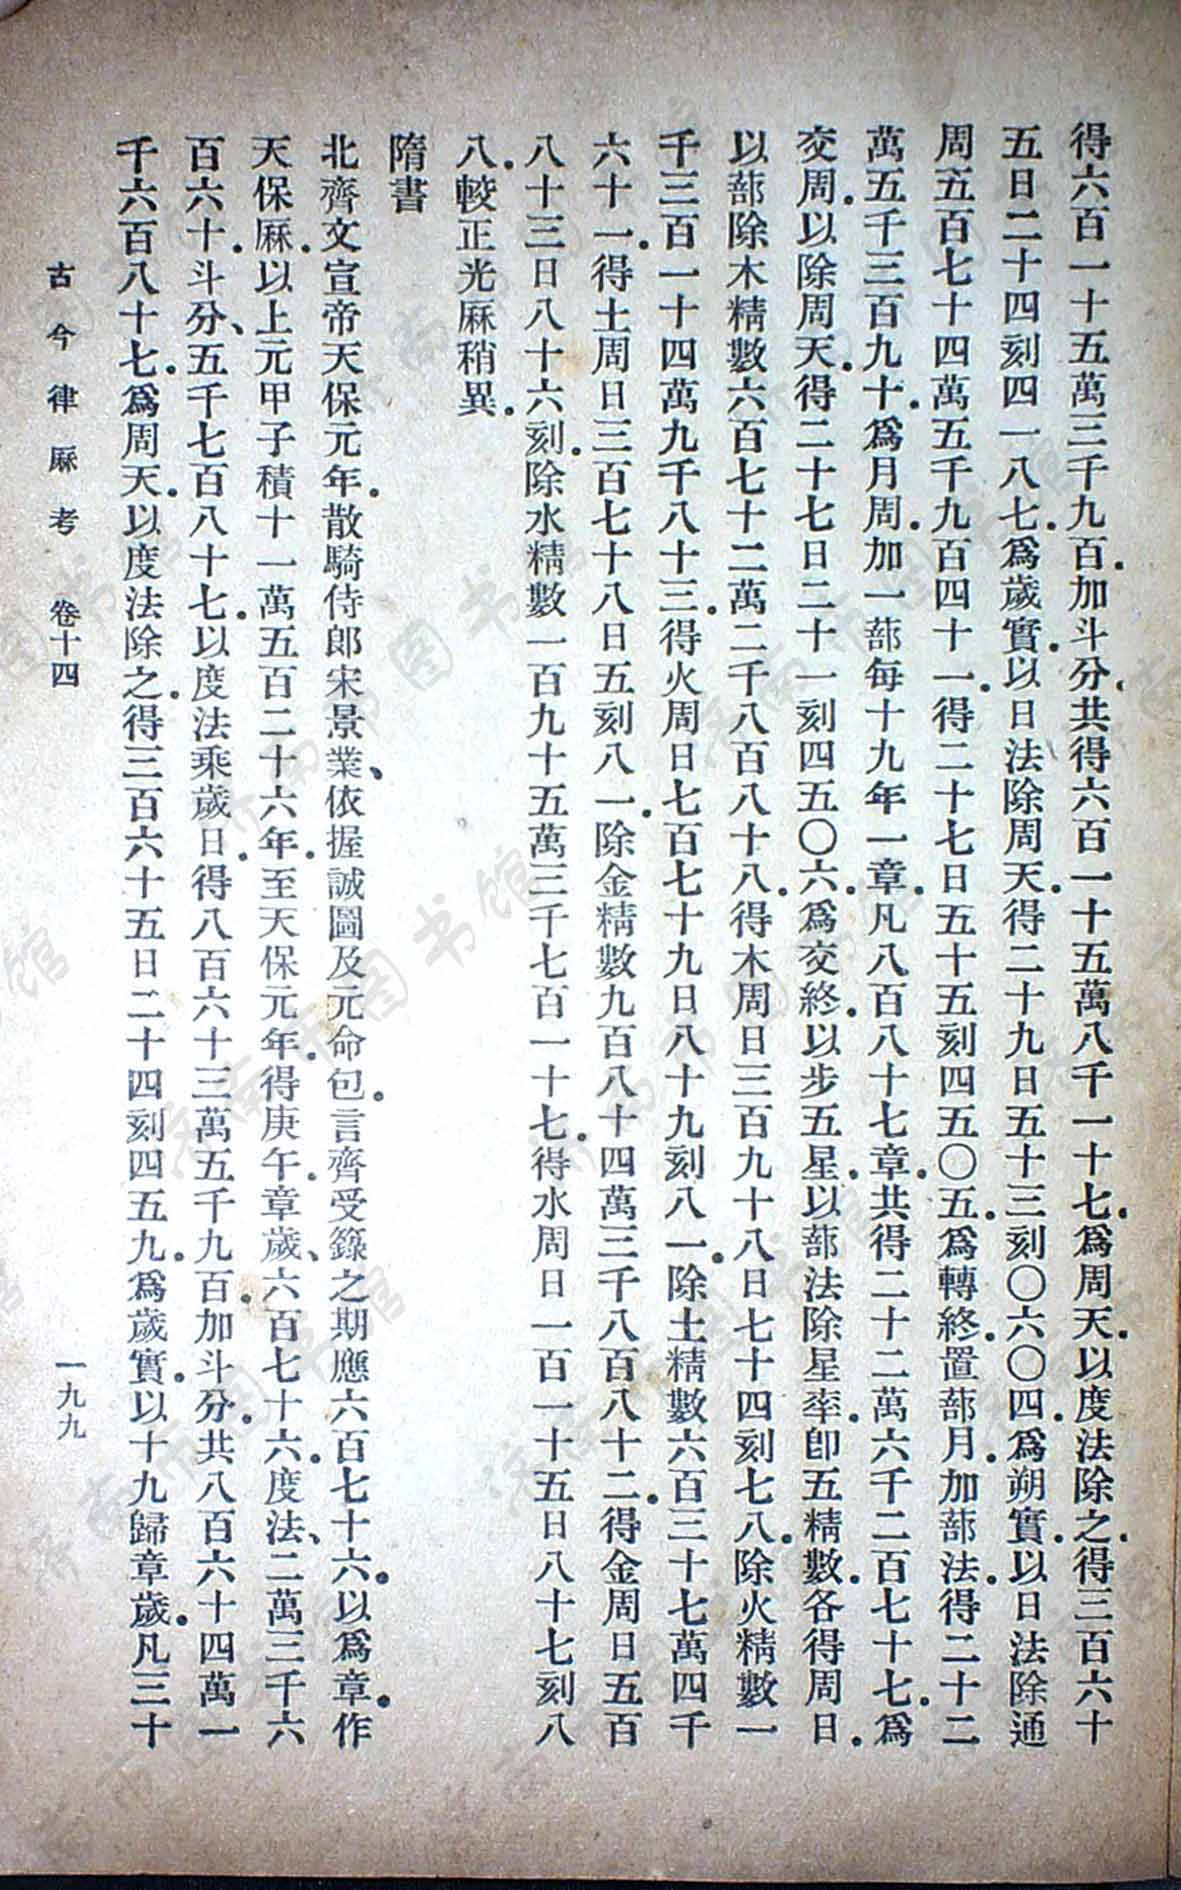 得六百一十五萬三千九百加斗分共得六百一十五萬八千一十七爲周天以度法除之得三百六十
五日二十四刻四一八七爲歲實以日法除周天得二十九日五十三刻〇六〇四爲朔實以日法除通
周五百七十四萬五千九百四十一得二十七日五十五刻四五〇五爲轉終置蔀月加蔀法得二十二
萬五千三百九十爲月周加一蔀每十九年一章凡八百八十七章共得二十二萬六千二百七十七爲
交周以除周天得二十七日二十一刻四五〇六爲交終以步五星以蔀法除星率卽五精數各得周日
以蔀除木精數六百七十二萬二千八百八十八得木周日三百九十八日七十四刻七八除火精數一
千三百一十四萬九千八十三得火周日七百七十九日八十九刻八一除土精數六百三十七萬四千
六十一得土周日三百七十八日五刻八一除金精數九百八十四萬三千八百八十二得金周日五百
八十三日八十六刻除水精數一百九十五萬三千七百一十七得水周日一百一十五日八十七刻八
八較正光厤稍異
隋書
北齊文宣帝天保元年散騎侍郎宋景業依握誠圖及元命包言齊受籙之期應六百七十六以爲章作
天保厤以上元甲子積十一萬五百二十六年至天保元年得庚午章歲六百七十六度法二萬三千六
百六十斗分五千七百八十七以度法乘歲日得八百六十三萬五千九百加斗分共八百六十四萬一
千六百八十七爲周天以度法除之得三百六十五日二十四刻四五九爲歲實以十九歸章歲凡三十
古今律厤考 卷十四 一九九